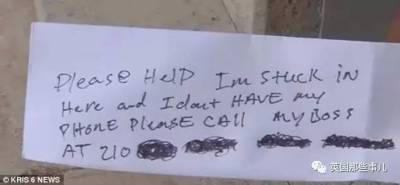 Please HELP Im stuck in
Here and I dont HAVE my
PHONE PLEASE CALL MY BOSS
AT 210
© KRIS 6 NEWS
英国那些事儿